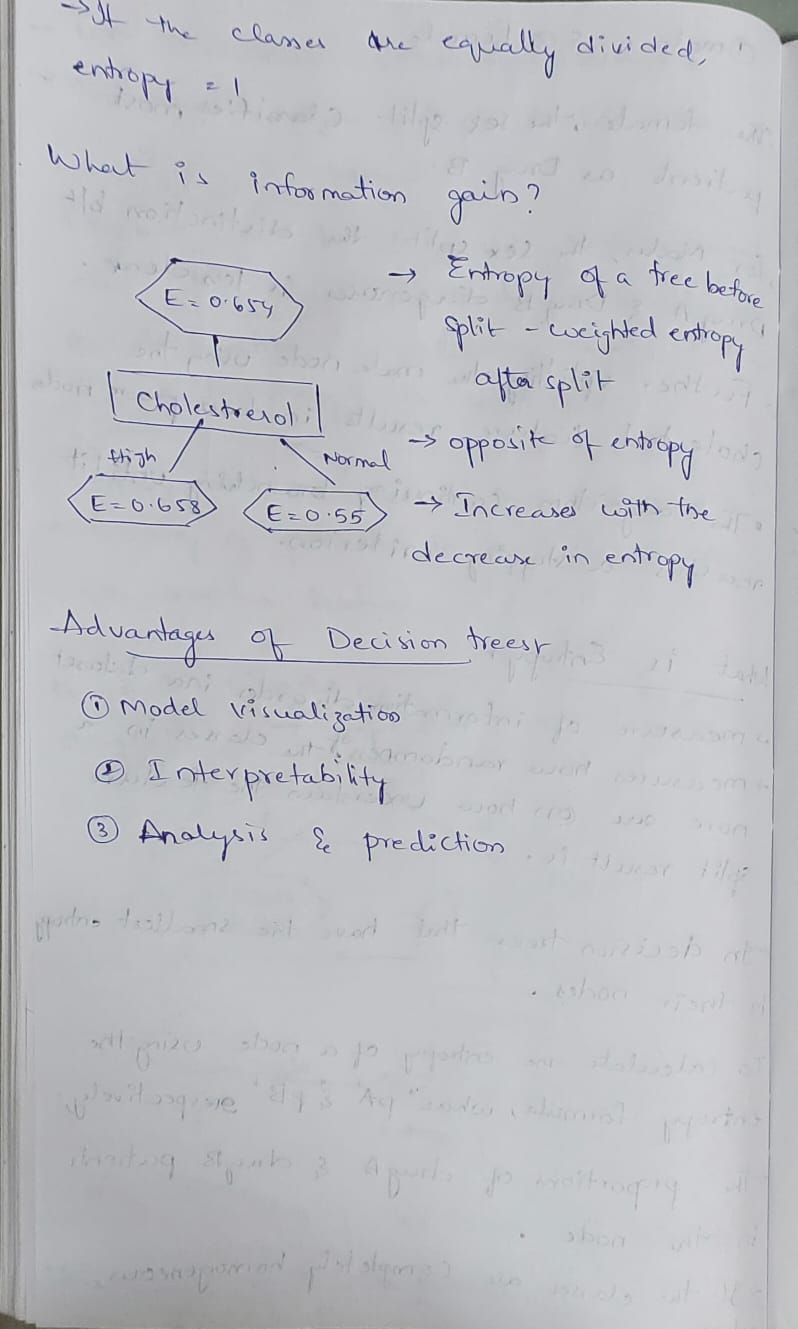 → If the classes are equally divided,
entropy = 1
What is information gain?
E = 0.654
Cholestrerol
High
Normal
E = 0.658
E = 0.55
→ Entropy of a tree before
split - weighted entropy
after split
→ opposite of entropy
→ Increases with the
decrease in entropy
Advantages of Decision trees
① Model visualization
② Interpretability
③ Analysis & prediction